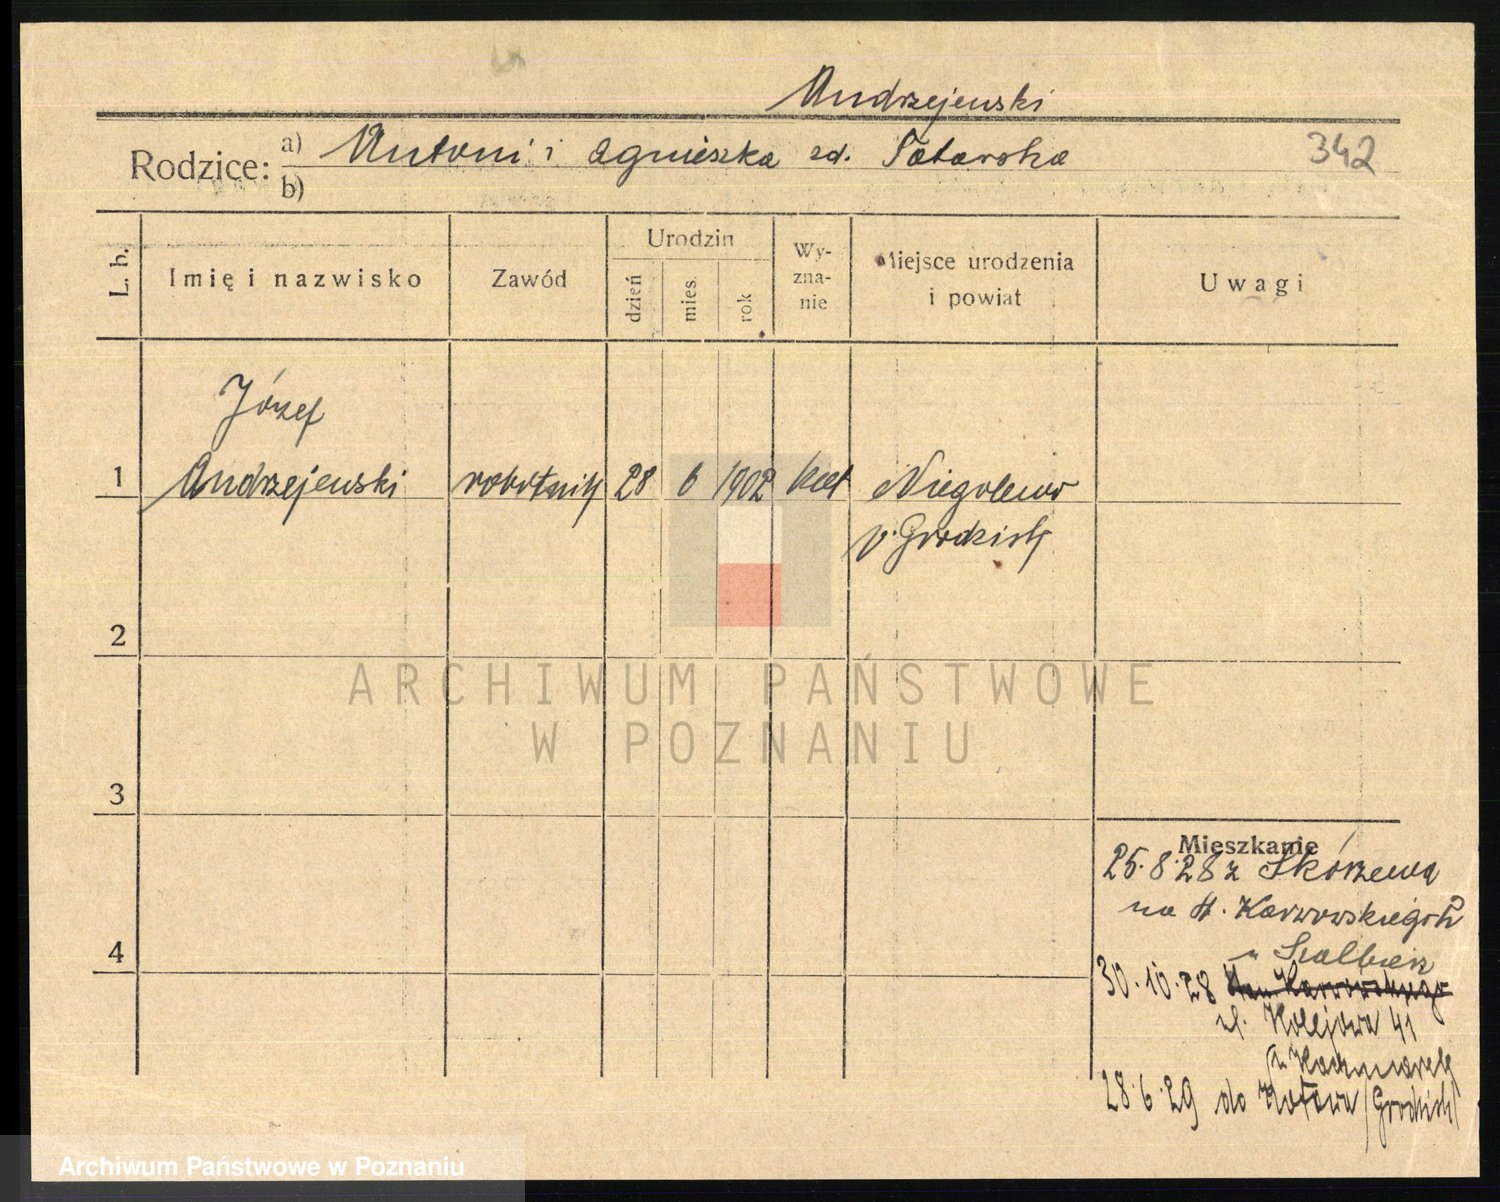 Andrzejewski
Rodzice: a) Antoni i Agnieszka zd. Tatarska
b)
342
L. b.
Imię i nazwisko
Zawód
Urodzin
dzień
mies.
rok
Wy-
zna-
nie
Miejsce urodzenia
i powiat
Uwagi
Józef
1 Andrzejewski robotnik 28 6 1902 kat Niegolewo
p. Grodzisk
2
3
4
Mieszkanie
25.8.28 z Skórzewa
na H. Karwowskiego
u Szalbierz
30.10.28
ul. Kolejowa 41
u Kaczmarek
28.6.29 do Kotowa /Grodzisk/
ARCHIWUM PAŃSTWOWE
W POZNANIU
Archiwum Państwowe w Poznaniu